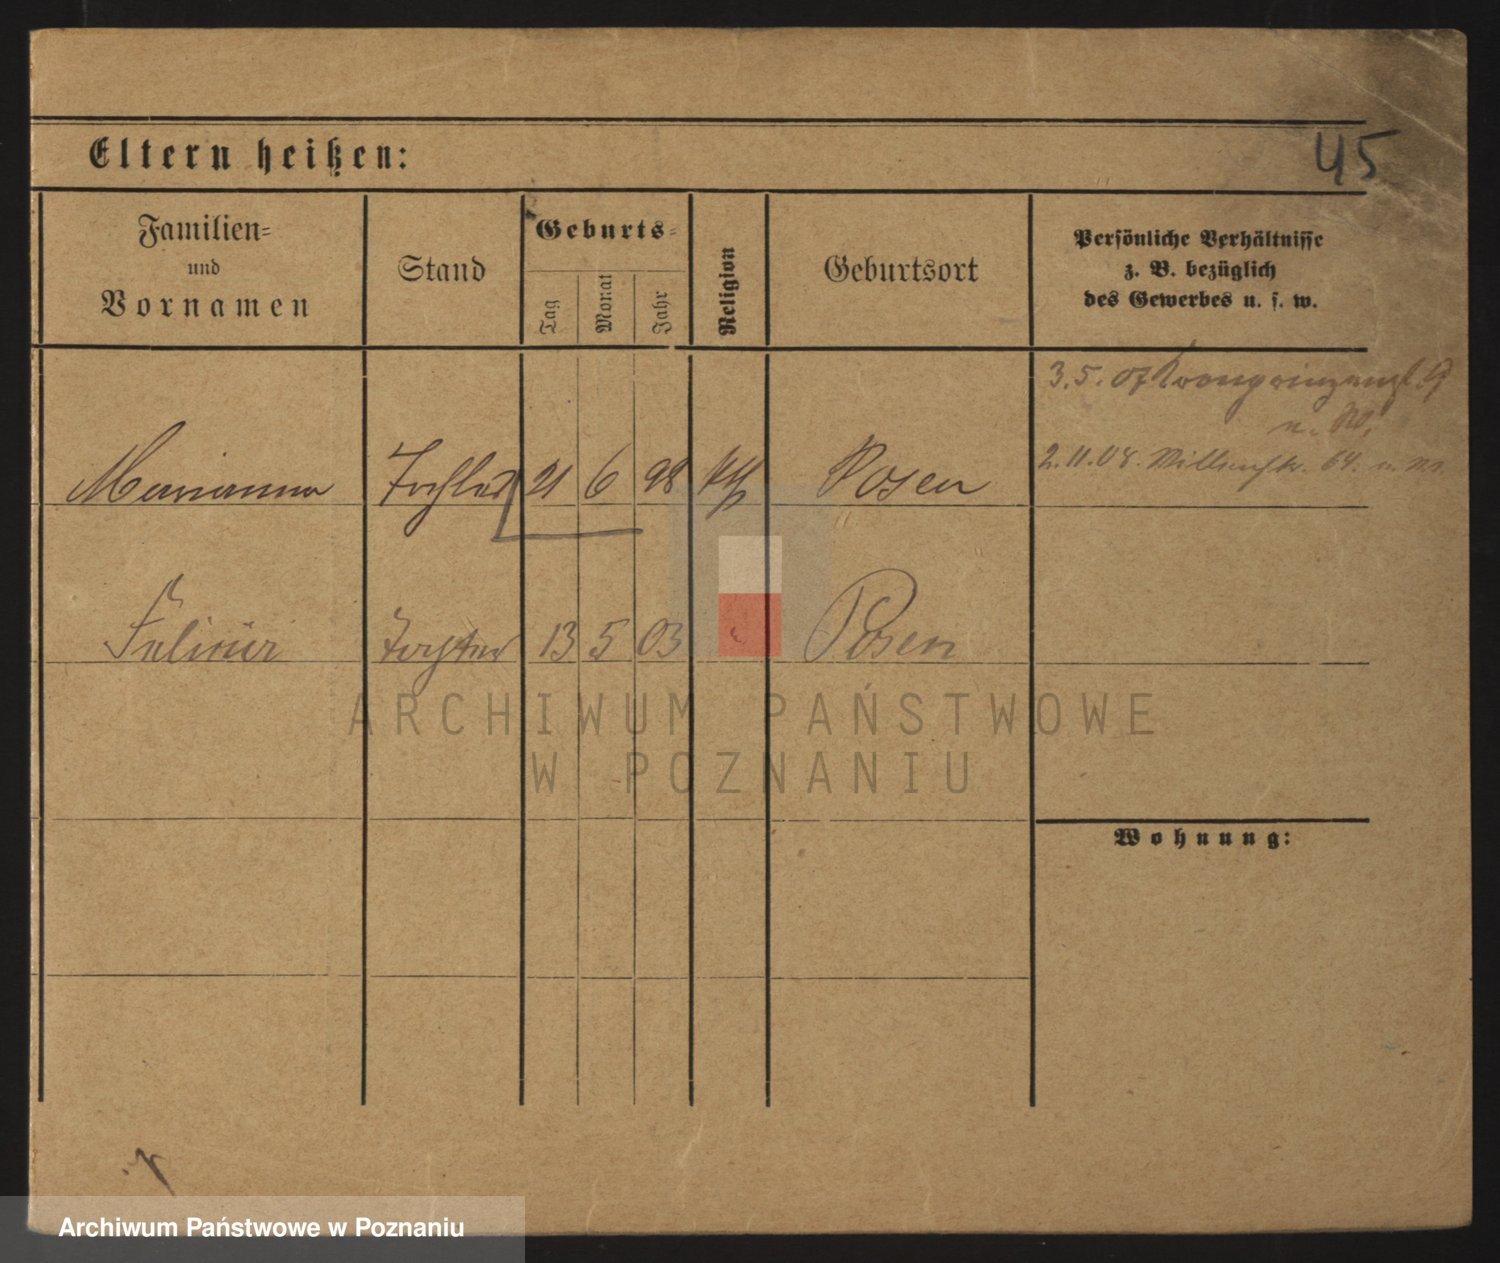 45
Eltern heißen:
Familien=
und
Vornamen
Stand
Geburts=
Tag
Monat
Jahr
Religion
Geburtsort
Persönliche Verhältnisse
z. B. bezüglich
des Gewerbes u. s. w.
3.5.07
2.11.08.
64.
Marianna Tochter 21 6 98 kth Posen
Tochter 13 5 03 Posen
ARCHIWUM PAŃSTWOWE
W POZNANIU
Wohnung:
Archiwum Państwowe w Poznaniu